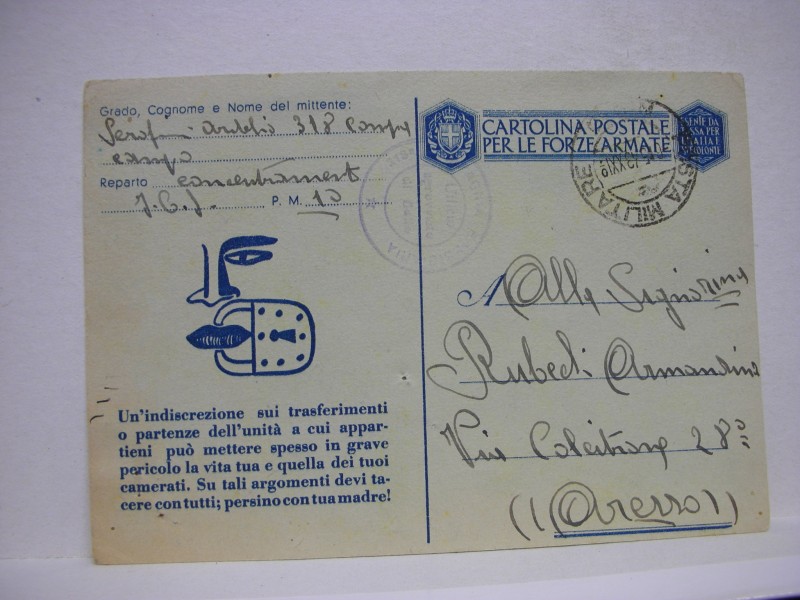 Grado, Cognome e Nome del mittente:
318 Comp
campo
Reparto concentrament
P. M. 10
CARTOLINA POSTALE
PER LE FORZE ARMATE
POSTA MILITARE
Alla Signorina
Armandina
Via 28
((Arezzo))
Un'indiscrezione sui trasferimenti
o partenze dell'unità a cui appar-
tieni può mettere spesso in grave
pericolo la vita tua e quella dei tuoi
camerati. Su tali argomenti devi ta-
cere con tutti; persino con tua madre!